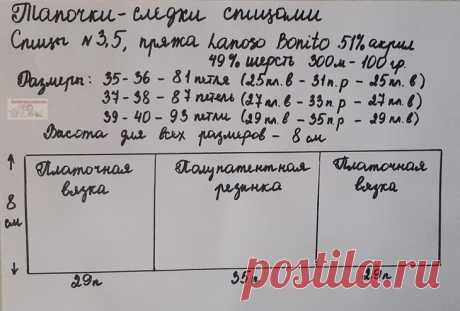 Тапочки-следки спицами
Спицы №3,5, пряжа Lanoso Bonito 51% акрил
49% шерсть 300м-100гр.
Размеры: 35-36-81 петля (25пл.в-31п.р-25пл.в)
37-38-87 петель (27пл.в-33п.р-27пл.в)
39-40-93 петли (29пл.в-35п.р-29пл.в)
Высота для всех размеров - 8см
Платочная вязка
Полупатентная резинка
Платочная вязка
8 см
29п
35п
29п
postila.ru